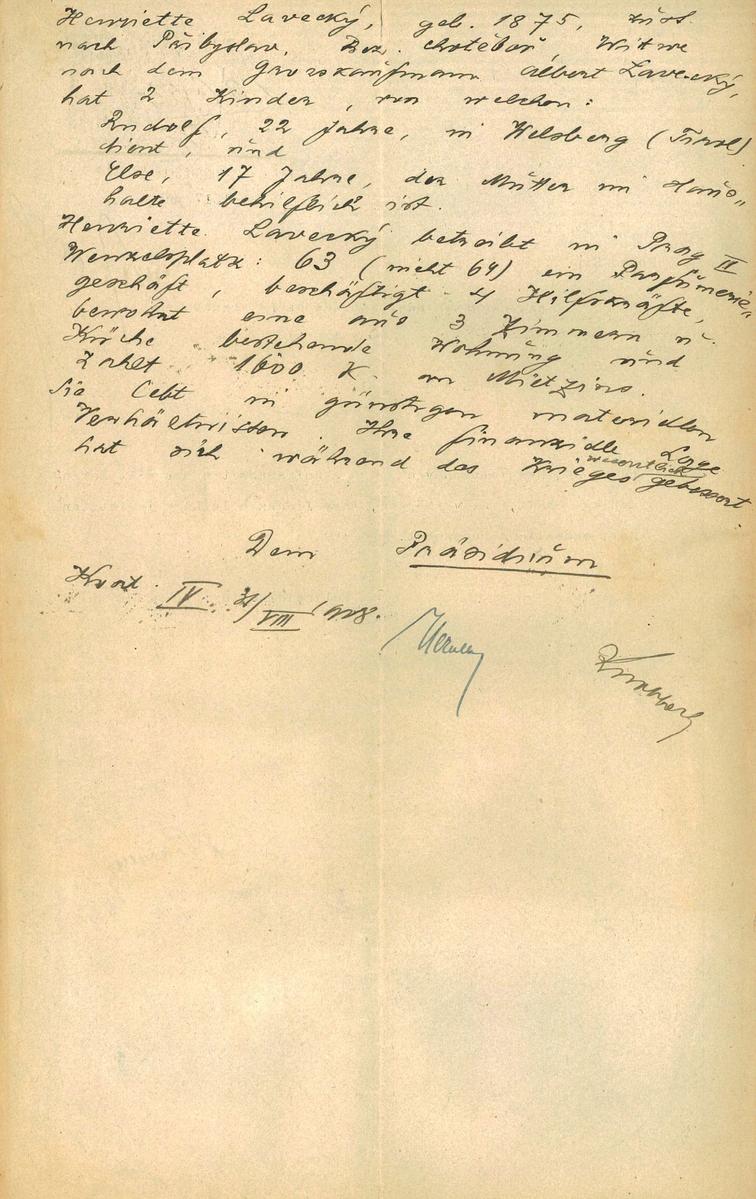 Henriette Lavecký, geb. 1875, zust.
nach Přibyslav, Bez. Chotěboř, Witwe
nach dem Grosskaufmann Albert Lavecký,
hat 2 Kinder, von welchen:
Rudolf, 22 Jahre, in Welsberg (Tirol)
dient, und
Else, 17 Jahre, der Mutter im Haus„
halte behilflich ist.
Henriette Lavecký betreibt in Prag II
Wenzelsplatz: 63 (nicht 64) ein Parfümerie„
geschäft, beschäftigt 4 Hilfskräfte,
bewohnt eine aus 3 Zimmern u.
Küche bestehende Wohnung und
zahlt 1600 K an Mietzins.
Sie lebt in günstigen materiellen
Verhältnissen. Ihre finanzielle Lage
hat sich während des Krieges wesentlich gebessert
Dem Präsidium
IV. 31/VIII 1918.